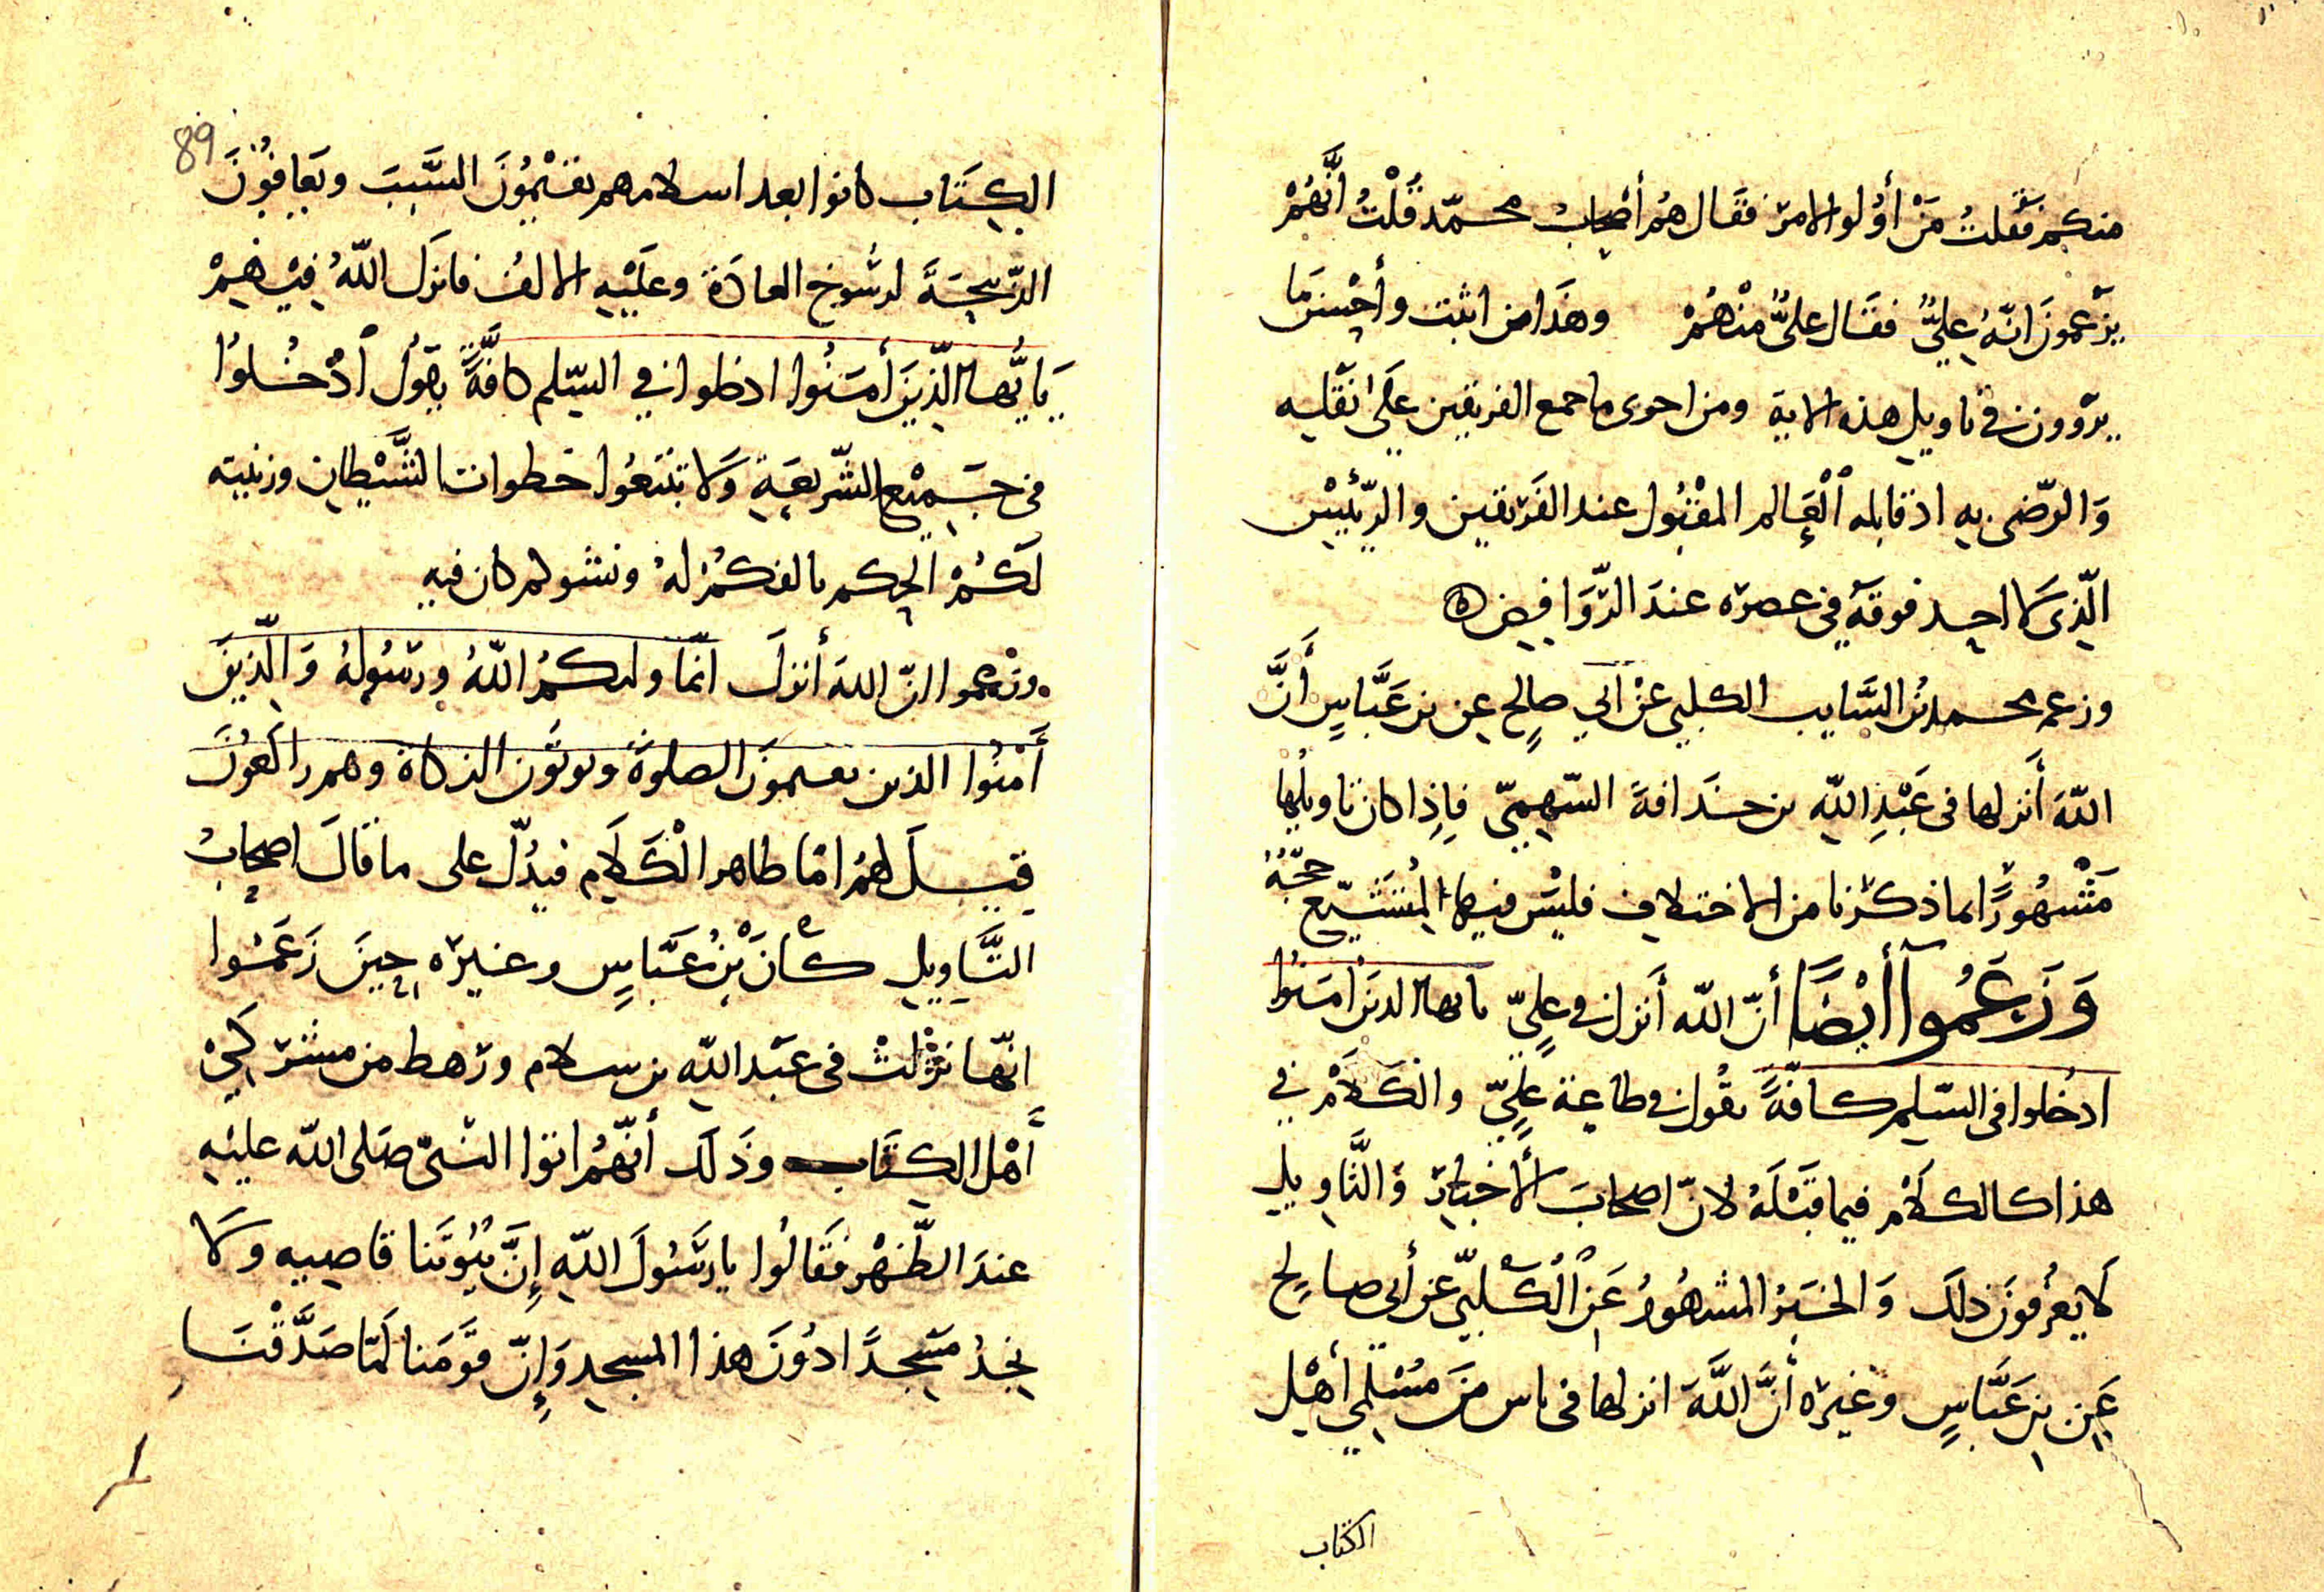 منكم فقلتُ مَنْ أوُلوا الامر فقَال هُم أصْحابُ محمّد قُلْتُ انَّهُمْ
يَزْعمونَ انّهُ عليٌّ فقَال عليٌّ منْهُمْ وهَذا من اثبت وأحْسنِ مَا
يروون في تاويل هذه الاية ومن احرى ما جمع الفريقين عَلَى نقله
وَالرّضى به اذ قابله الْعَالم المقْبُول عند الفَريقين والرّئيْس
الّذى لا احد فوقَهُ في عصره عندَ الرّوَافِض ه
وزعم محمد بْنُ السَّايب الكلبي عَنْ ابي صالِح عن بن عَبَّاسٍ أَنَّ
اللّهَ أَنزلها فى عَبْدِ اللّه بن حذَافة السّهميّ فاِذا كان تاويلُها
مَشْهُورًا لما ذكرْنا من الاختلاف فليْس فيها لمُتَشَيّع حجّةٌ
وَزَعَمُوا أَيْضًا أنّ اللّه أَنزل في عليٍّ يا ايها الذينَ آمَنُوا
ادخُلوا فى السّلم كافّةً يقُول في طاعة عليٍّ والكَلامُ في
هذا كالكلامْ فيما قَبْلَهُ لانّ اصحابَ الأخبار وَالتَّاويل
لَا يعْرفونَ ذلكَ وَالخبَرُ المشهُورُ عَنِ الْكَلْبيّ عن أبى صالحٍ
عَنِ بن عَبَّاسٍ وغيره أَنَّ اللَّهَ انزلها فى ناس منَ مُسْلمي أهْل
الكتاب
89
الكِتَاب كانوا بعد اسلامهم يقيْمُونَ السَّبتَ ويَعَافُوْنَ
الذّبيحَةَ لرسُوخ العادَة وعلَيْه الالف فانزَل اللّهُ فيْهِمْ
يَا أيُّها الّذينَ أمَنُوا ادخلوا في السّلم كافَّةً يقول اُدْخُلُوا
في جَميْع الشّريعَةِ وَلا تتبعُوا خطوات الشَّيْطان وزينته
لَكُمْ الحكم بالفكمْ لهُ ونشوكم كان فيه
وزعموا انّ اللهَ أَنزلَ انّمَا وليكمُ اللّهُ ورسُولُهُ وَالّذينَ
أَمنُوا الذين يقيمونَ الصلوةَ ويوتُون الزكاة وهم راكعُونَ
قيلَ لهُمْ امّا ظاهر الْكَلَام فيدُلّ على ما قالَ اصحابُ
التَّاويل كأنْ بْنُ عَبَّاسٍ وغيره حينَ زَعَمُوا
انّها نزلتْ فى عَبْد اللّه بن سلام ورَهط من مشركي
أَهْل الكتَاب وذَلكَ أنّهُمْ اتوا النّبىّ صَلى اللّه عليْه
عندَ الظّهْر فقَالُوا يا رسُولَ اللّه إِنَّ بُيُوتَنا قاصيه ولا
نجدُ مَسْجدًا دُونَ هذا المسجد وَإِنّ قوْمَنا لَمّا صَدَّقْنَا